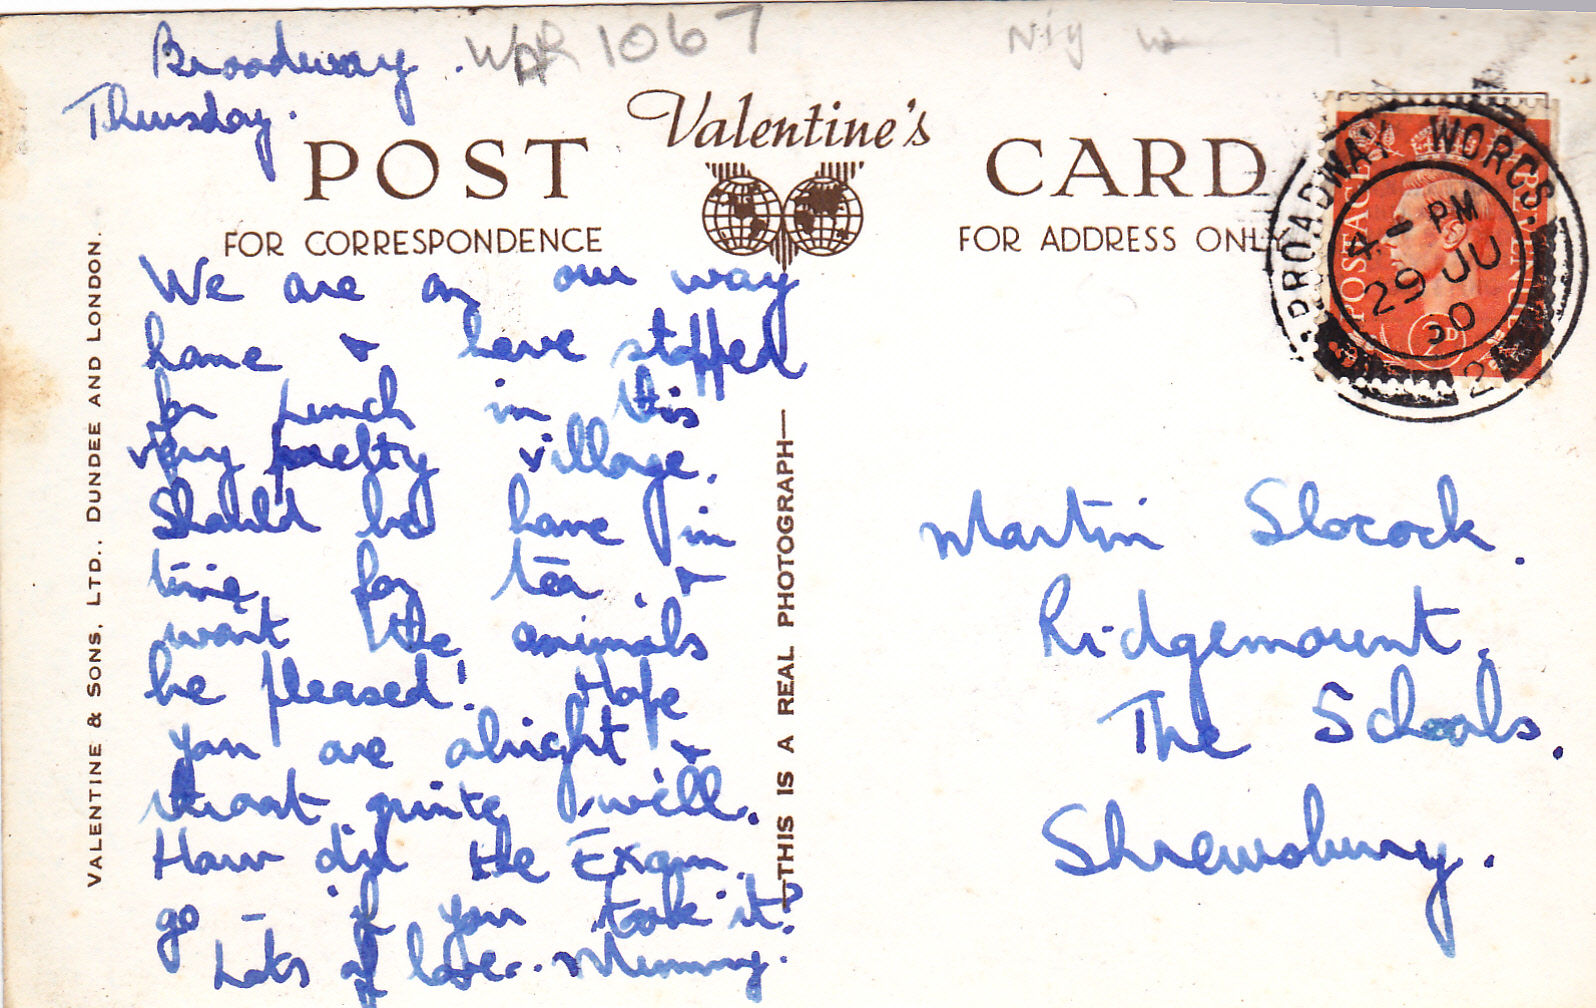 Broadway. WAR 1067
Thursday.
Valentine's
POST CARD
FOR CORRESPONDENCE
FOR ADDRESS ONLY
VALENTINE & SONS, LTD., DUNDEE AND LONDON.
We are on our way
home & have stopped
for Lunch in this
very pretty village.
Should be home in
time for tea. &
won't the animals
be pleased! Hope
you are alright &
throat quite well.
How did the Exam.
go – if you took it?
Lots of love. Mummy.
THIS IS A REAL PHOTOGRAPH
BROADWAY WORCS.
4 - PM
29 JU
50
POSTAGE
REVENUE
2D
Martin Slocock.
Ridgemount.
The Schools.
Shrewsbury.